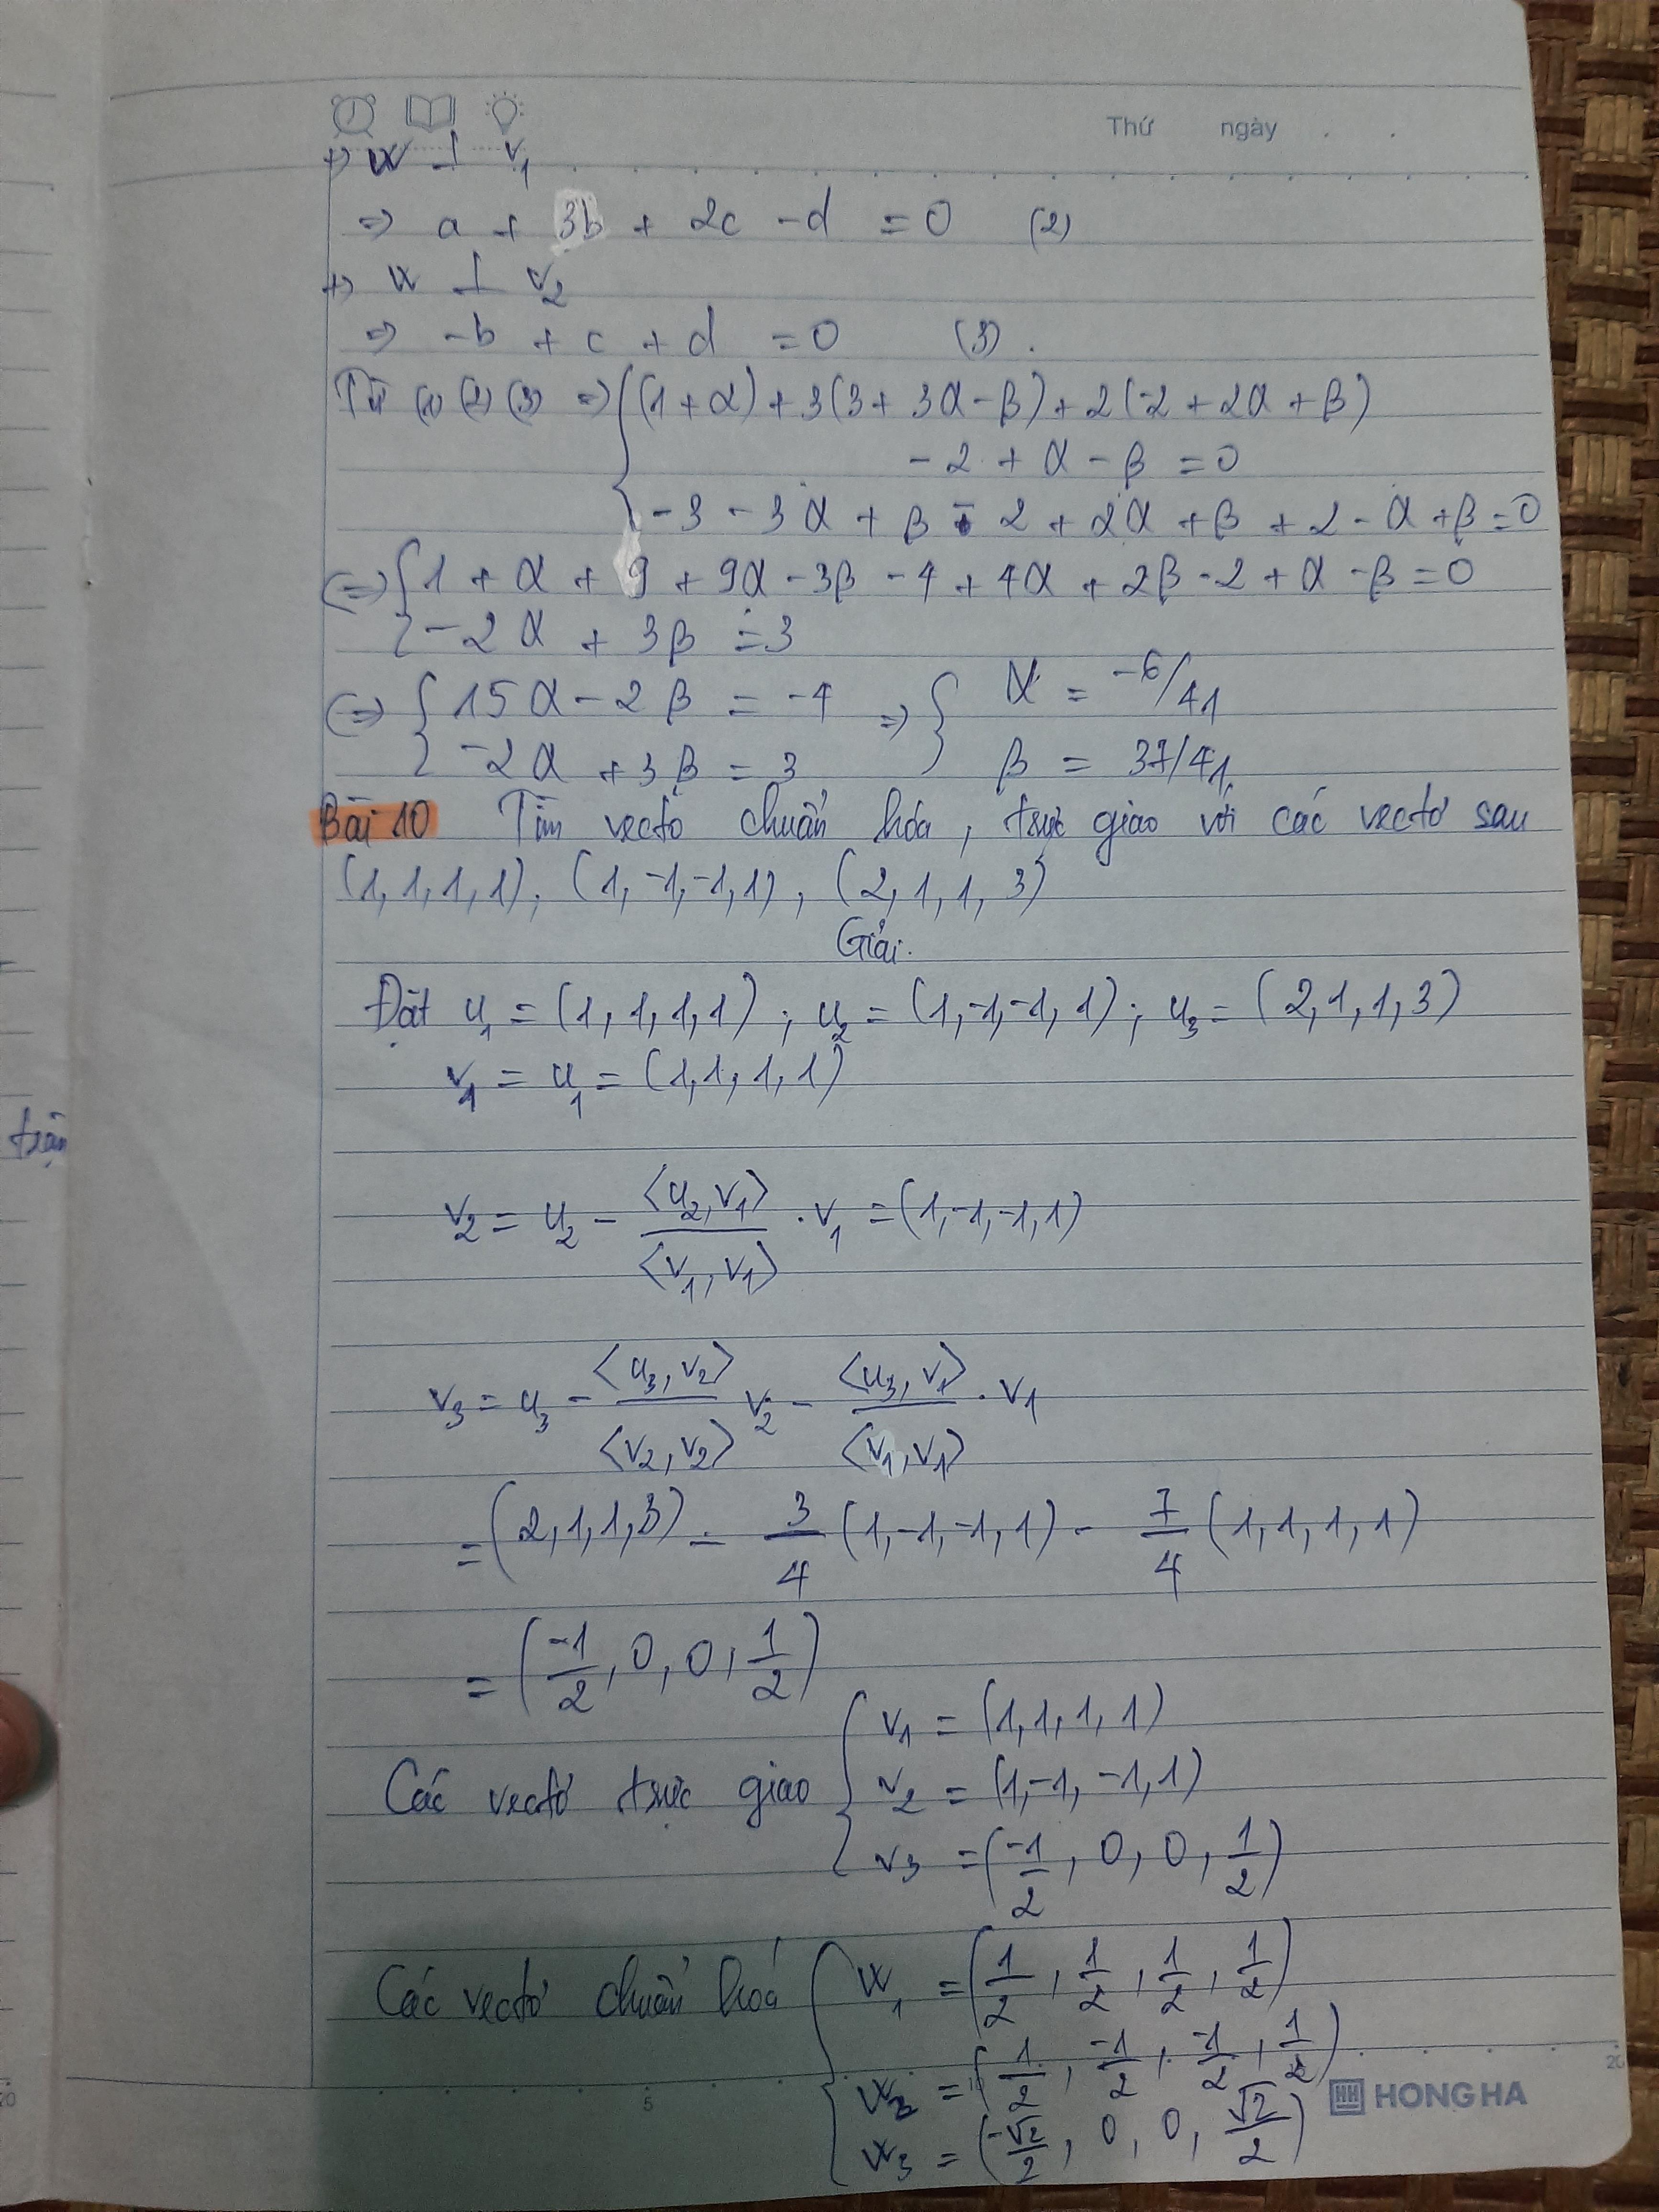 Thứ ngày . .
+) w ⊥ v₁
=> a + 3b + 2c - d = 0 (2)
+) w ⊥ v₂
=> -b + c + d = 0 (3).
Từ (1) (2) (3) => { (1 + α) + 3(3 + 3α - β) + 2(-2 + 2α + β)
-2 + α - β = 0
-3 - 3α + β - 2 + 2α + β + 2 - α + β = 0
<=> { 1 + α + 9 + 9α - 3β - 4 + 4α + 2β - 2 + α - β = 0
-2α + 3β = 3
<=> { 15α - 2β = -4 => { α = -6/41
-2α + 3β = 3 β = 37/41
Bài 10 Tìm vectơ chuẩn hóa, trực giao với các vectơ sau
(1, 1, 1, 1), (1, -1, -1, 1), (2, 1, 1, 3)
Giải.
Đặt u₁ = (1, 1, 1, 1) ; u₂ = (1, -1, -1, 1) ; u₃ = (2, 1, 1, 3)
v₁ = u₁ = (1, 1, 1, 1)
v₂ = u₂ - <u₂, v₁>/<v₁, v₁> . v₁ = (1, -1, -1, 1)
v₃ = u₃ - <u₃, v₂>/<v₂, v₂> v₂ - <u₃, v₁>/<v₁, v₁> . v₁
= (2, 1, 1, 3) - 3/4 (1, -1, -1, 1) - 7/4 (1, 1, 1, 1)
= (-1/2, 0, 0, 1/2)
Các vectơ trực giao { v₁ = (1, 1, 1, 1)
v₂ = (1, -1, -1, 1)
v₃ = (-1/2, 0, 0, 1/2)
Các vectơ chuẩn hoá { w₁ = (1/2, 1/2, 1/2, 1/2)
w₂ = (1/2, -1/2, -1/2, 1/2)
w₃ = (-√2/2, 0, 0, √2/2)
trận
20 5 20
HONG HA